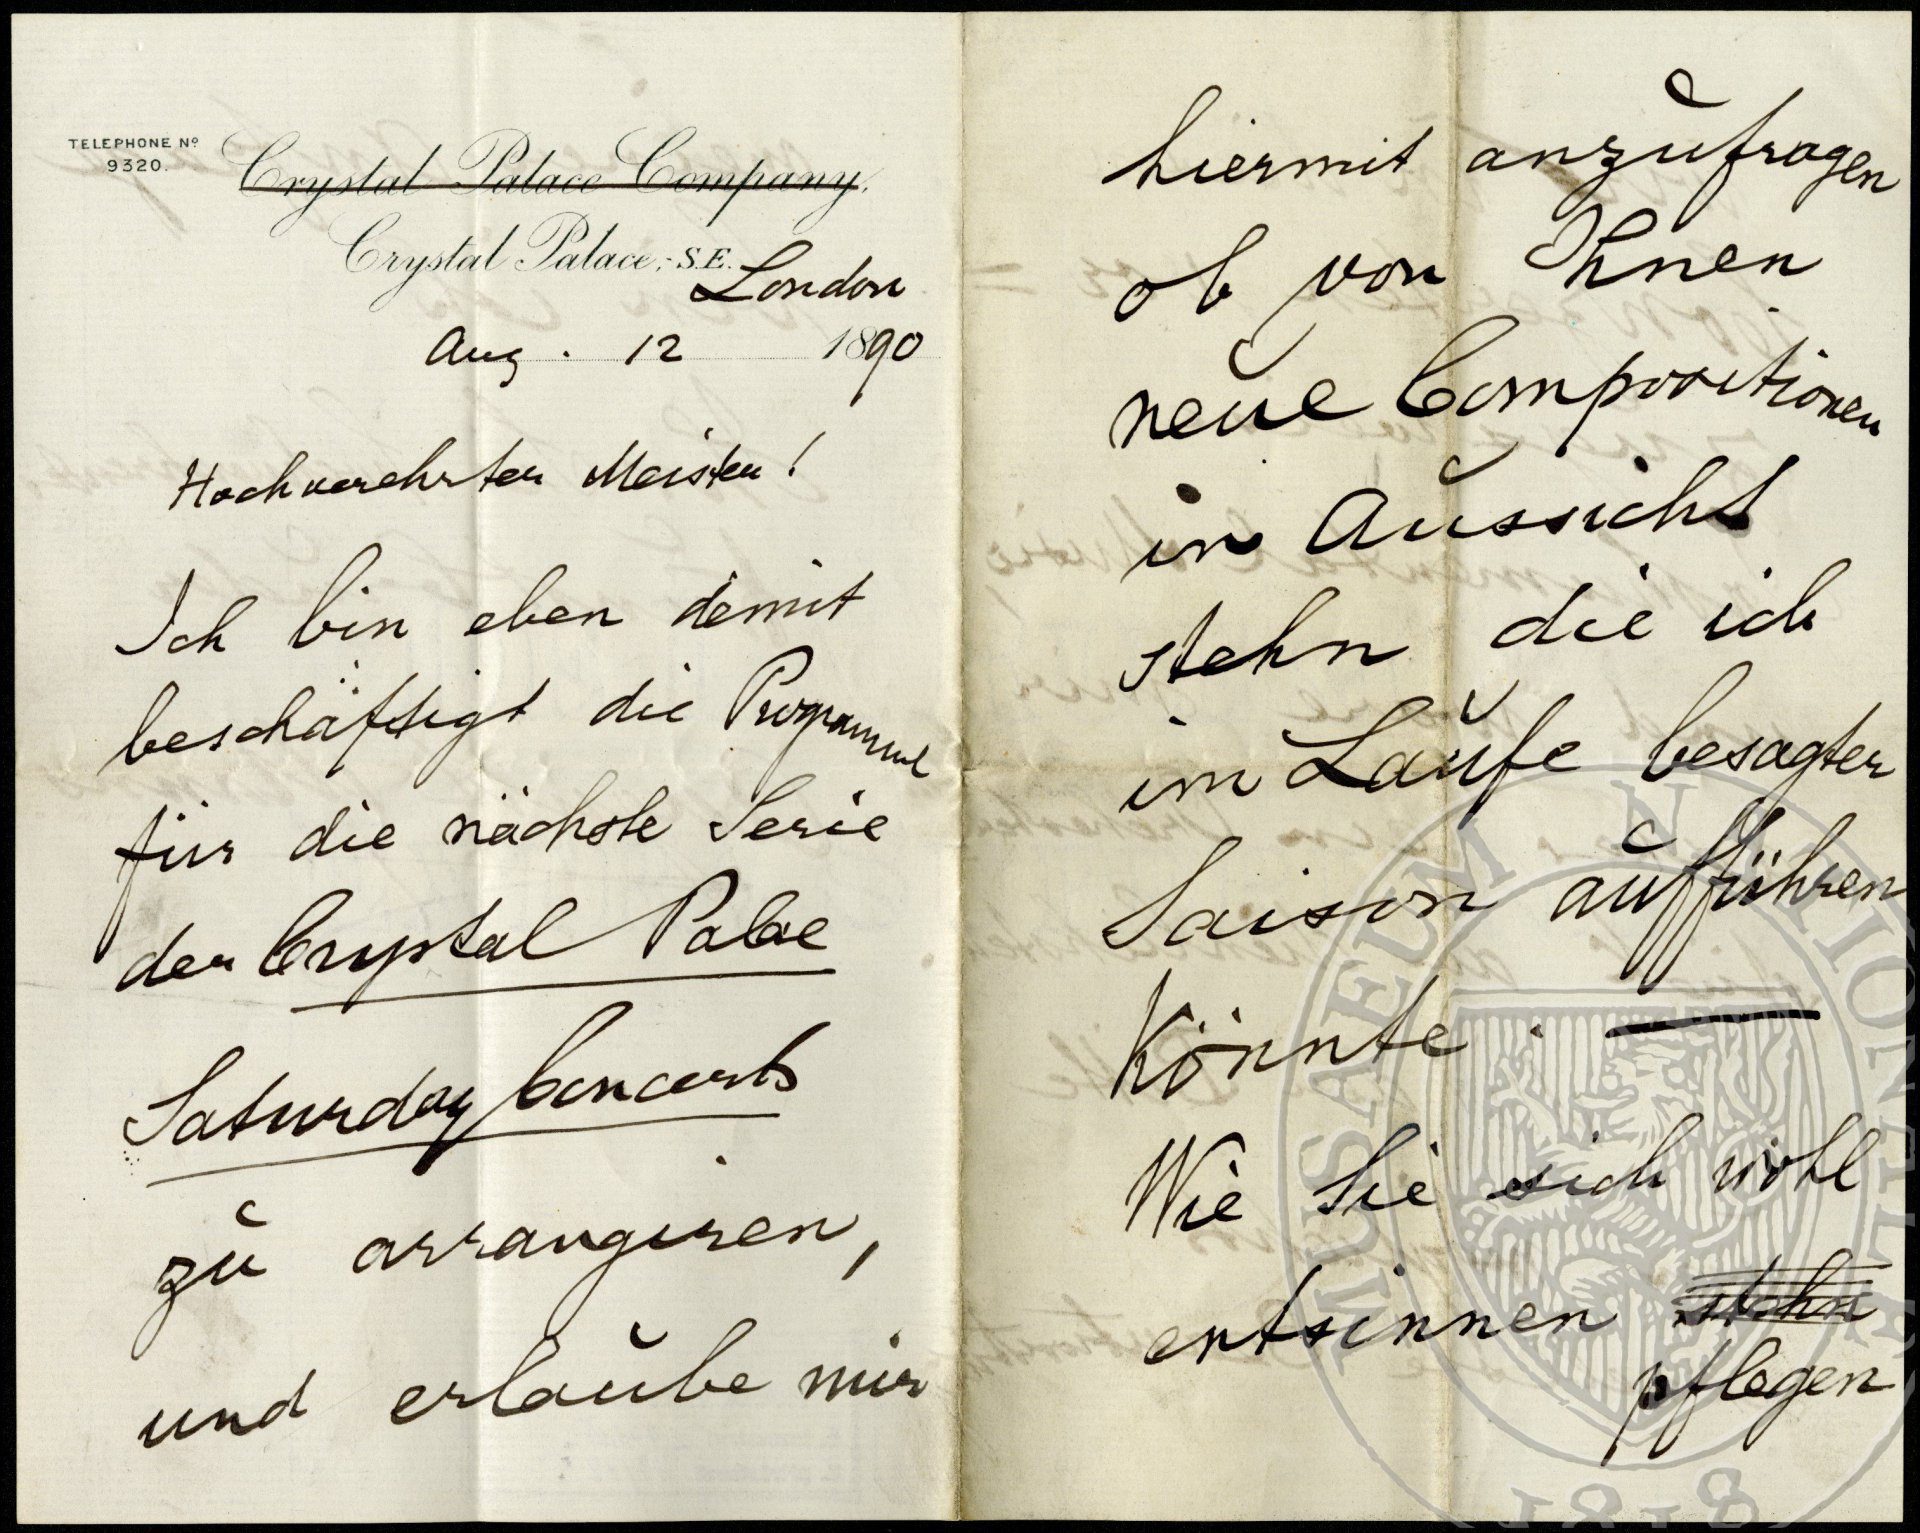 TELEPHONE Nº
9320.
Crystal Palace Company,
Crystal Palace, S.E.
London
Aug. 12 1890
Hochverehrter Meister!
Ich bin eben damit
beschäftigt die Programme
für die nächste Serie
der Crystal Palace
Saturday Concerts
zu arrangiren,
und erlaube mir
hiermit anzufragen
ob von Ihnen
neue Compositionen
in Aussicht
stehn die ich
im Laufe besagter
Saison aufführen
könnte. —
Wie Sie sich wohl
entsinnen stehn
pflegen
MUSAEUM NATIONALE
1818